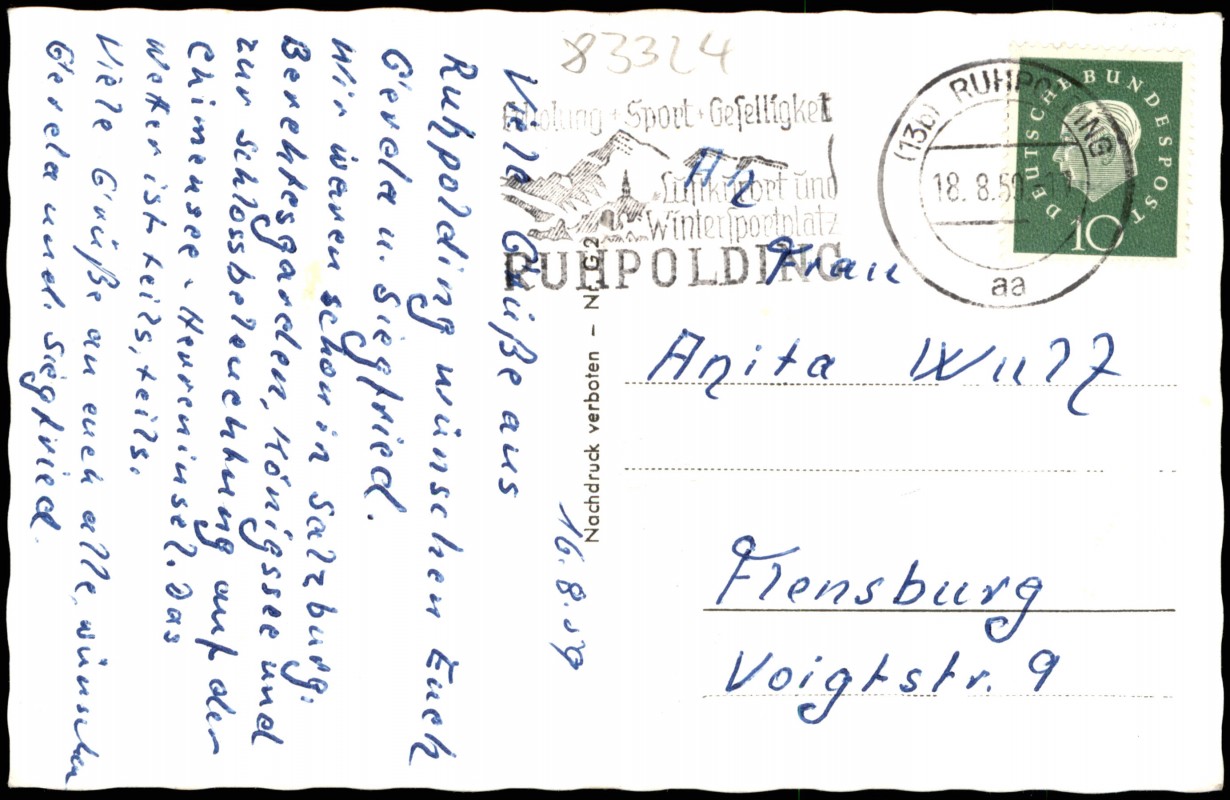 83324
Erholung + Sport + Geselligkeit
Luftkurort und
Wintersportplatz
RUHPOLDING
(13b) RUHPOLDING
18. 8. 59
aa
DEUTSCHE BUNDESPOST
10
16. 8. 59
Viele Grüße aus
Ruhpolding wünschen Euch
Gerda u. Siegfried.
Wir waren schon in Salzburg,
Berchtesgarden, Königssee und
zur Schlossbeleuchtung auf der
Chimensee - Herreninsel. Das
Wetter ist teils, teils.
Viele Grüße an euch alle, wünschen
Gerda und Siegfried.
Nachdruck verboten – Nr. G2
An
Frau
Anita Wulf
Flensburg
Voigtstr. 9